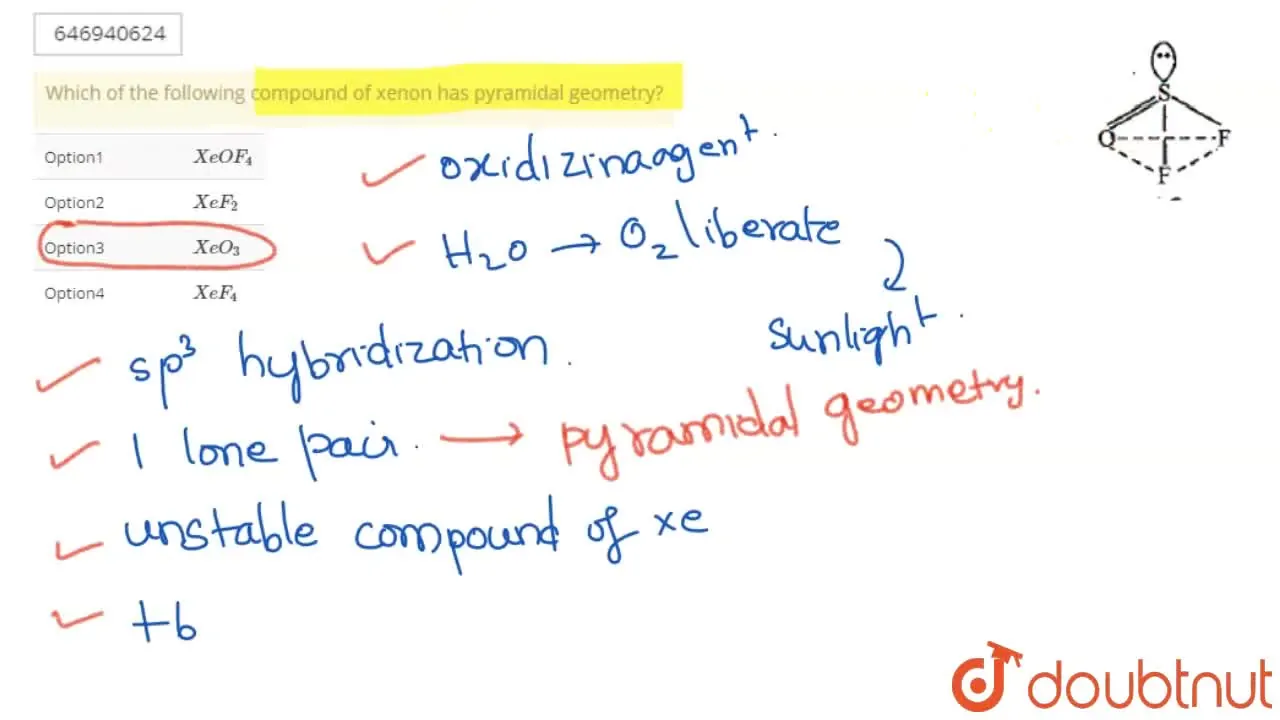 646940624
Which of the following compound of xenon has pyramidal geometry?
Option1 XeOF₄
Option2 XeF₂
Option3 XeO₃
Option4 XeF₄
S
O F
F
oxidizinaagent.
H₂O → O₂ liberate
Sunlight.
sp³ hybridization.
1 lone pair. → pyramidal geometry.
unstable compound of xe
+b
doubtnut